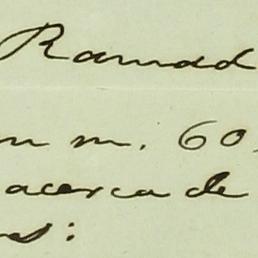 Ramad
m. 60
acerca de
s: